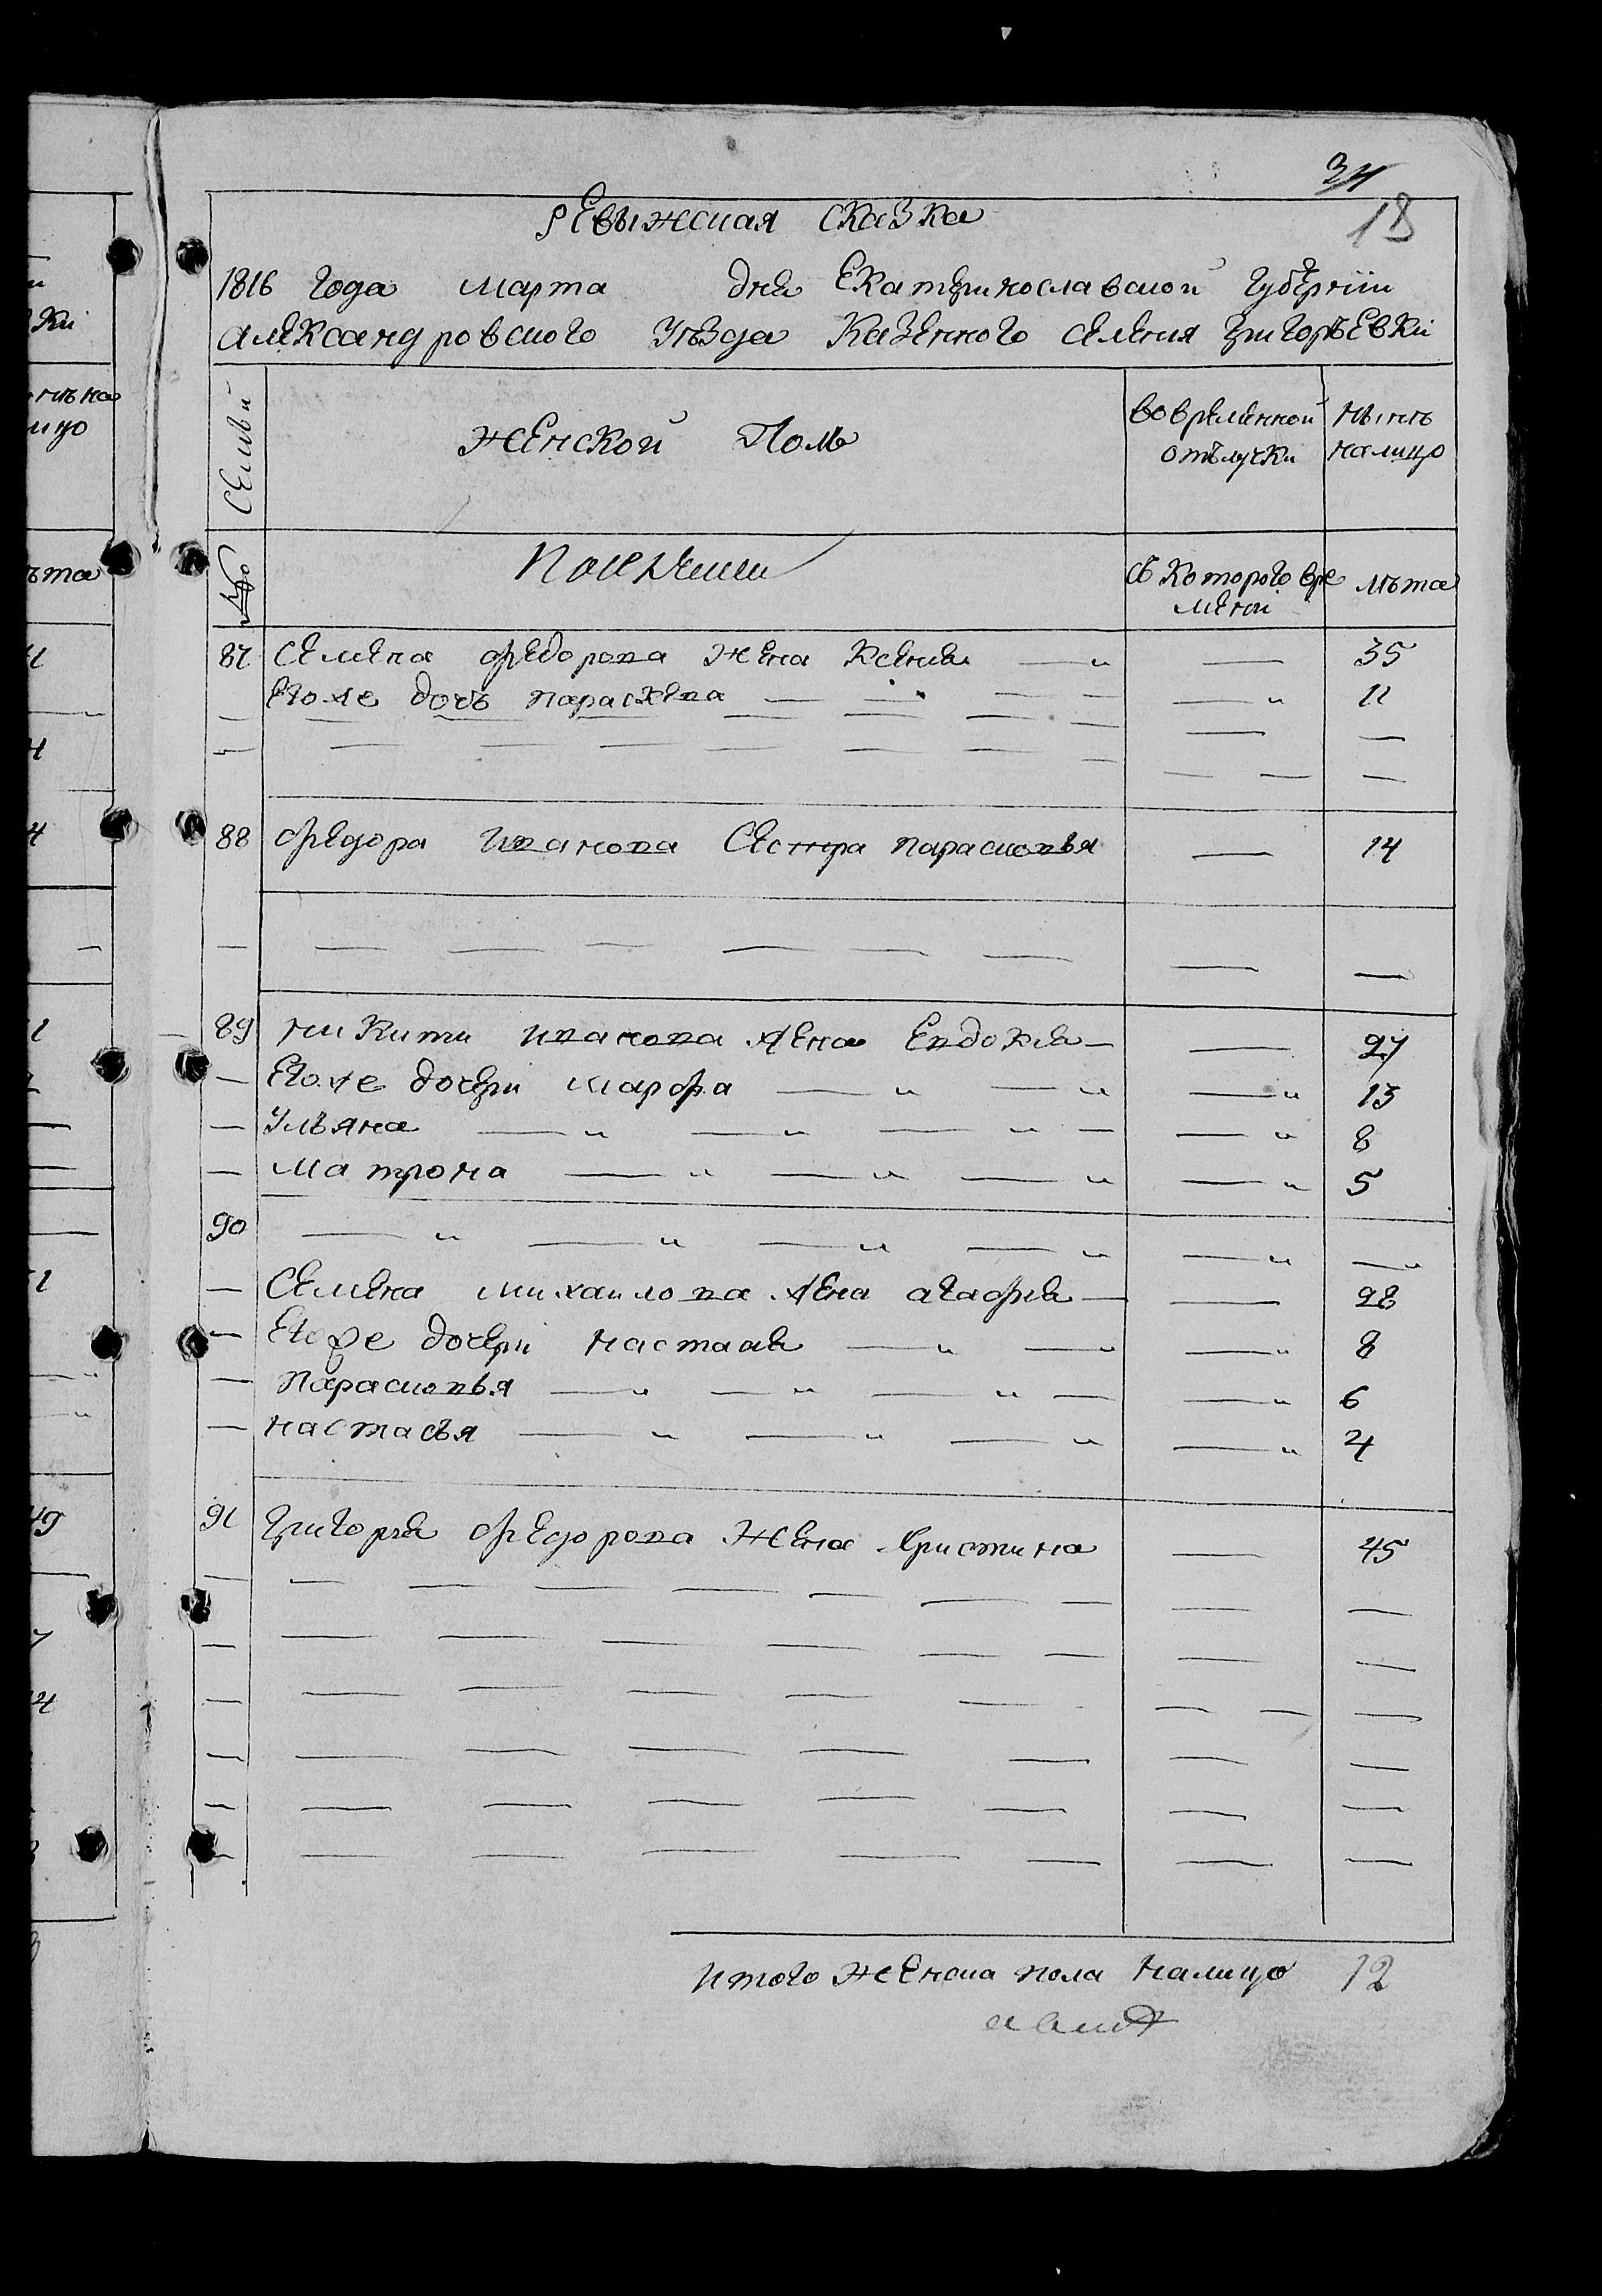 34
18
ревыжская сказка
1816 года марта дня Екатеринославской губернiи
александровского уезда казенного селения григорьевки
семьи женской поль во временной отълучки ныне налицо
№ съ которого времени лѣта
87 семена федорова жена ксения — 35
Его же дочь парасковева — 11
88 федора иванова сестра парасковья — 14
89 никити иванова жена Евдокия — 27
— Его же дочери марфа — 13
— ульяна — 8
— матрона — 5
90
— семена михаилова жена агафия — 28
— Его же дочери настасия — 8
— парасковья — 6
— настасья — 4
91 григория федорова жена христина — 45
итого женска пола налицо 12